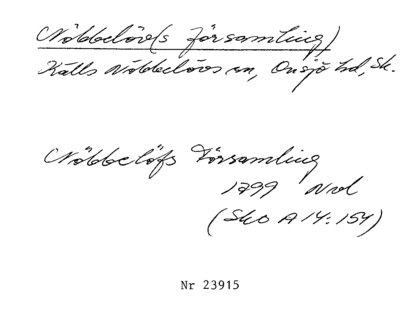 Nöbbelöv(s Församling)
Källs Nöbbelövs sn, Onsjö hd, Sk.
Nöbbelöfs Församling
1799 Nvd
(Sko A 14:154)
Nr 23915